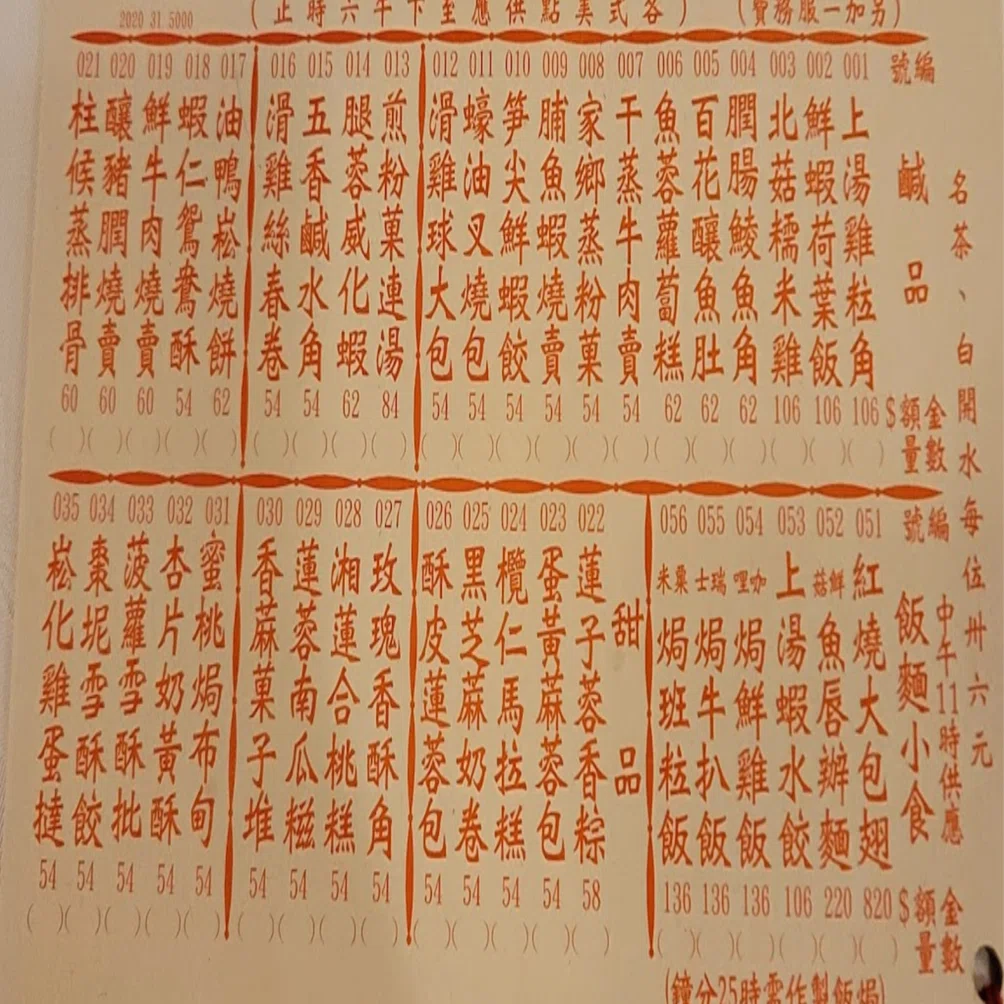 (各式美點供應至下午六時正)
(另加一服務費)
2020 31 5000
名茶、白開水每位卅六元
編號
鹹品
金額$
數量
001 上湯雞粒角 106 ( )
002 鮮蝦荷葉飯 106 ( )
003 北菇糯米雞 106 ( )
004 膶腸鯪魚角 62 ( )
005 百花釀魚肚 62 ( )
006 魚蓉蘿蔔糕 62 ( )
007 干蒸牛肉賣 54 ( )
008 家鄉蒸粉菓 54 ( )
009 脯魚蝦燒賣 54 ( )
010 笋尖鮮蝦餃 54 ( )
011 蠔油叉燒包 54 ( )
012 滑雞球大包 54 ( )
013 煎粉菓連湯 84 ( )
014 腿蓉威化蝦 62 ( )
015 五香鹹水角 54 ( )
016 滑雞絲春卷 54 ( )
017 油鴨崧燒餅 62 ( )
018 蝦仁鴛鴦酥 54 ( )
019 鮮牛肉燒賣 60 ( )
020 釀豬膶燒賣 60 ( )
021 柱候蒸排骨 60 ( )
中午11時供應
編號
飯麵小食
金額$
數量
051 紅燒大包翅 820 ( )
052 鮮菇魚唇辦麵 220 ( )
053 上湯蝦水餃 106 ( )
054 咖哩焗鮮雞飯 136 ( )
055 瑞士焗牛扒飯 136 ( )
056 粟米焗班粒飯 136 ( )
(焗飯製作需時25分鐘)
甜品
022 蓮子蓉香粽 58 ( )
023 蛋黃蔴蓉包 54 ( )
024 欖仁馬拉糕 54 ( )
025 黑芝蔴奶卷 54 ( )
026 酥皮蓮蓉包 54 ( )
027 玫瑰香酥角 54 ( )
028 湘蓮合桃糕 54 ( )
029 蓮蓉南瓜糍 54 ( )
030 香蔴菓子堆 54 ( )
031 蜜桃焗布甸 54 ( )
032 杏片奶黃酥 54 ( )
033 菠蘿雪酥批 54 ( )
034 棗坭雪酥餃 54 ( )
035 崧化雞蛋撻 54 ( )